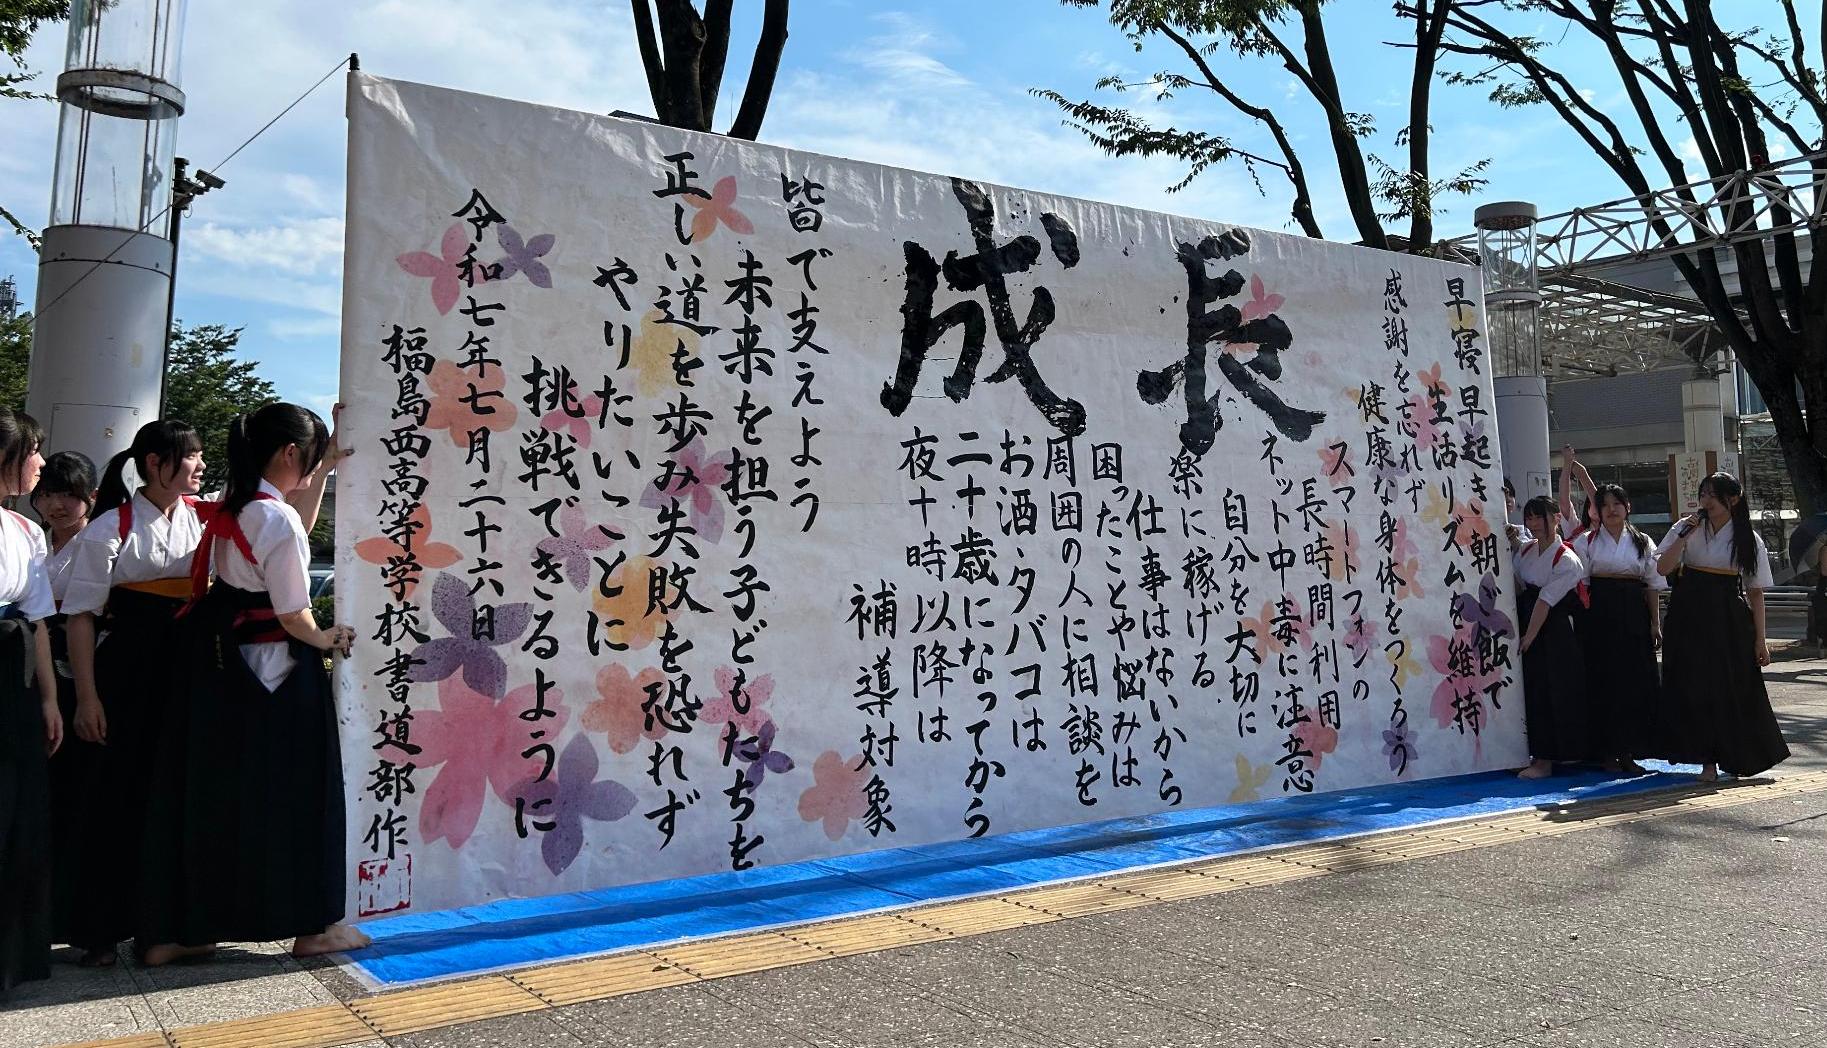 成長
早寝早起き朝ご飯で
生活リズムを維持
感謝を忘れず
健康な身体をつくろう
スマートフォンの
長時間利用
ネット中毒に注意
自分を大切に
楽に稼げる
仕事はないから
困ったことや悩みは
周囲の人に相談を
お酒・タバコは
二十歳になってから
夜十時以降は
補導対象
皆で支えよう
未来を担う子どもたちを
正しい道を歩み失敗を恐れず
やりたいことに
挑戦できるように
令和七年七月二十六日
福島西高等学校書道部作